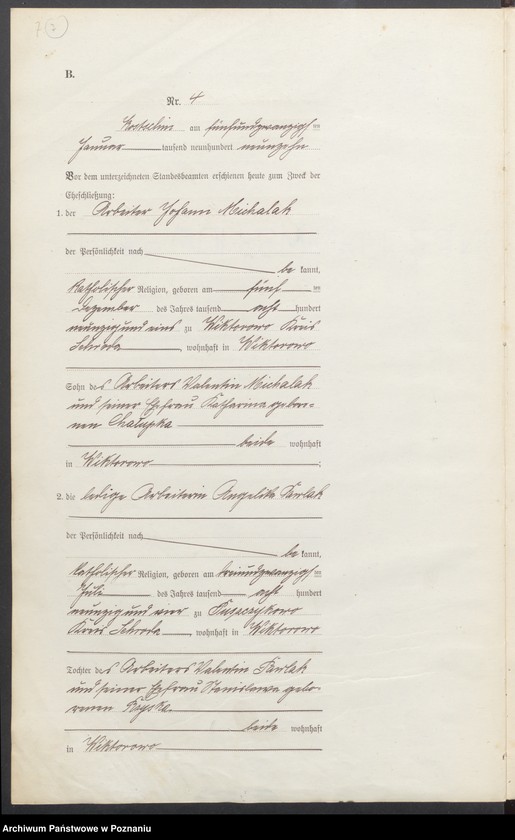 7 (7)
B.
Nr. 4
Kostschin am fünfundzwanzigsten
Januar tausend neunhundert neunzehn
Vor dem unterzeichneten Standesbeamten erschienen heute zum Zweck der
Eheschließung:
1. der Arbeiter Johann Michalak
der Persönlichkeit nach
be kannt,
katholischer Religion, geboren am fünften
Dezember des Jahres tausend acht hundert
neunzig und eins zu Wiktorowo Kreis
Schroda, wohnhaft in Wiktorowo
Sohn des Arbeiters Valentin Michalak
und seiner Ehefrau Katharina gebore-
nen Chałupka
beide wohnhaft
in Wiktorowo;
2. die ledige Arbeiterin Angelika
der Persönlichkeit nach
be kannt,
katholischer Religion, geboren am dreiundzwanzigsten
Juli des Jahres tausend acht hundert
neunzig und vier zu
Kreis Schroda, wohnhaft in Wiktorowo
Tochter des Arbeiters Valentin
und seiner Ehefrau Stanislawa gebo-
renen
beide wohnhaft
in Wiktorowo
Archiwum Państwowe w Poznaniu